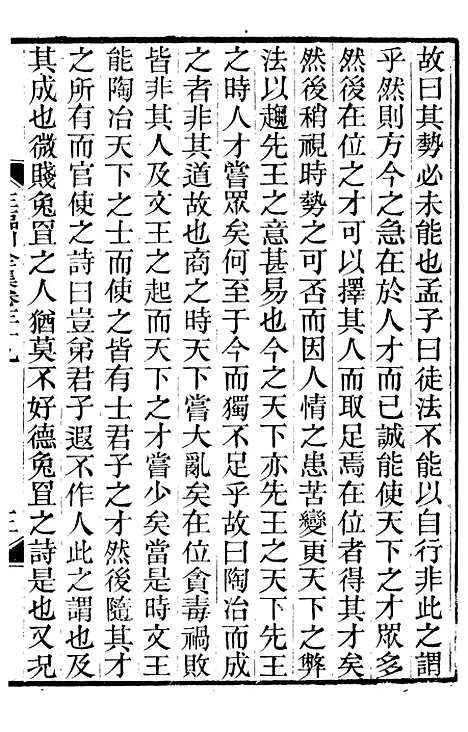 故曰其勢必未能也孟子曰徒法不能以自行非此之謂
乎然則方今之急在於人才而已誠能使天下之才眾多
然後在位之才可以擇其人而取足焉在位者得其才矣
然後稍視時勢之可否而因人情之患苦變更天下之弊
法以趨先王之意甚易也今之天下亦先王之天下先王
之時人才嘗眾矣何至于今而獨不足乎故曰陶冶而成
之者非其道故也商之時天下嘗大亂矣在位貪毒禍敗
皆非其人及文王之起而天下之才嘗少矣當是時文王
能陶冶天下之士而使之皆有士君子之才然後隨其才
之所有而官使之詩曰豈弟君子遐不作人此之謂也及
其成也微賤兔罝之人猶莫不好德兔罝之詩是也又況
王臨川全集卷三十九
三